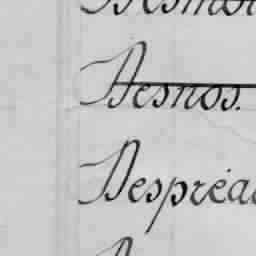 Desnos.
Despréa